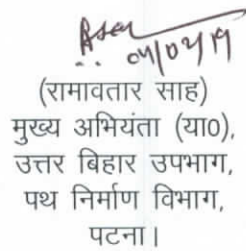 04/02/19
(रामावतार साह)
मुख्य अभियंता (या0),
उत्तर बिहार उपभाग,
पथ निर्माण विभाग,
पटना।